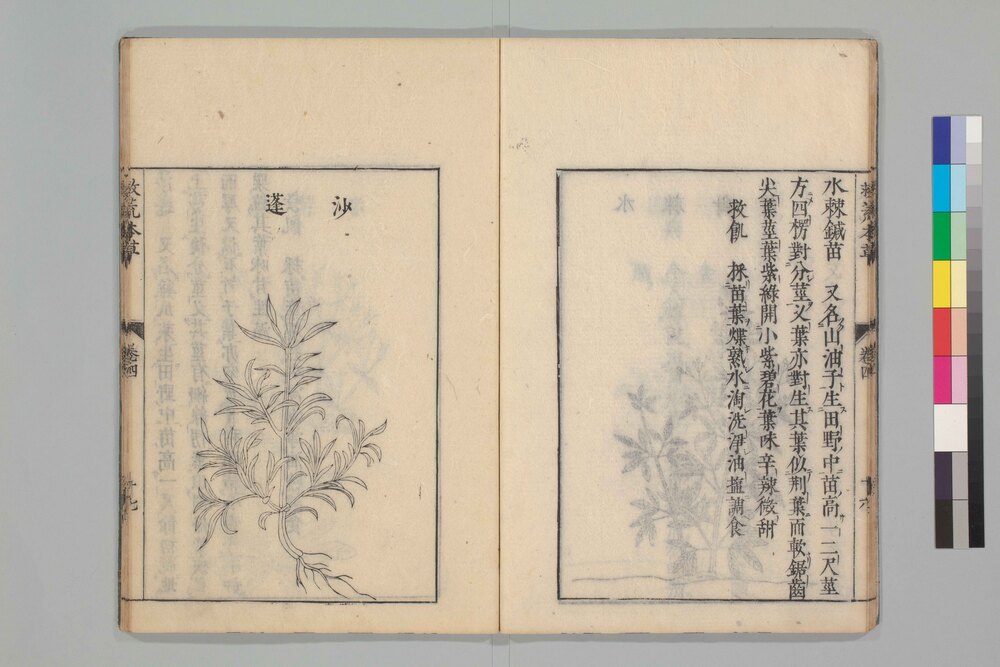 水棘鍼苗　又名山油子生田野中苗高一二尺莖
方四楞對分莖叉葉亦對生其葉似荆葉而軟鋸齒
尖葉莖葉紫綠開小紫碧花葉味辛辣微甜
救飢　採苗葉煠熟水淘洗淨油鹽調食
卷四
沙蓬
救荒本草
卷四
十七